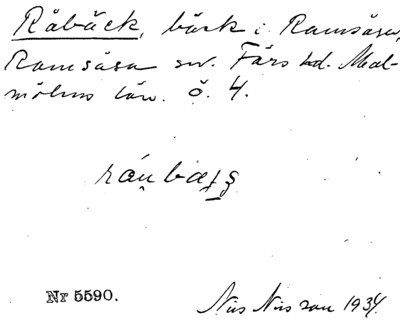 Råbäck, bäck i Ramsåsa,
Ramsåsa sn. Färs hd. Mal-
möhus län. ö. 4.
Nr 5590.
Nils Nilsson 1934